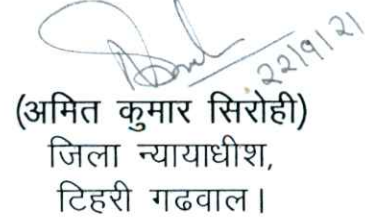 22/9/21
(अमित कुमार सिरोही)
जिला न्यायाधीश,
टिहरी गढवाल।